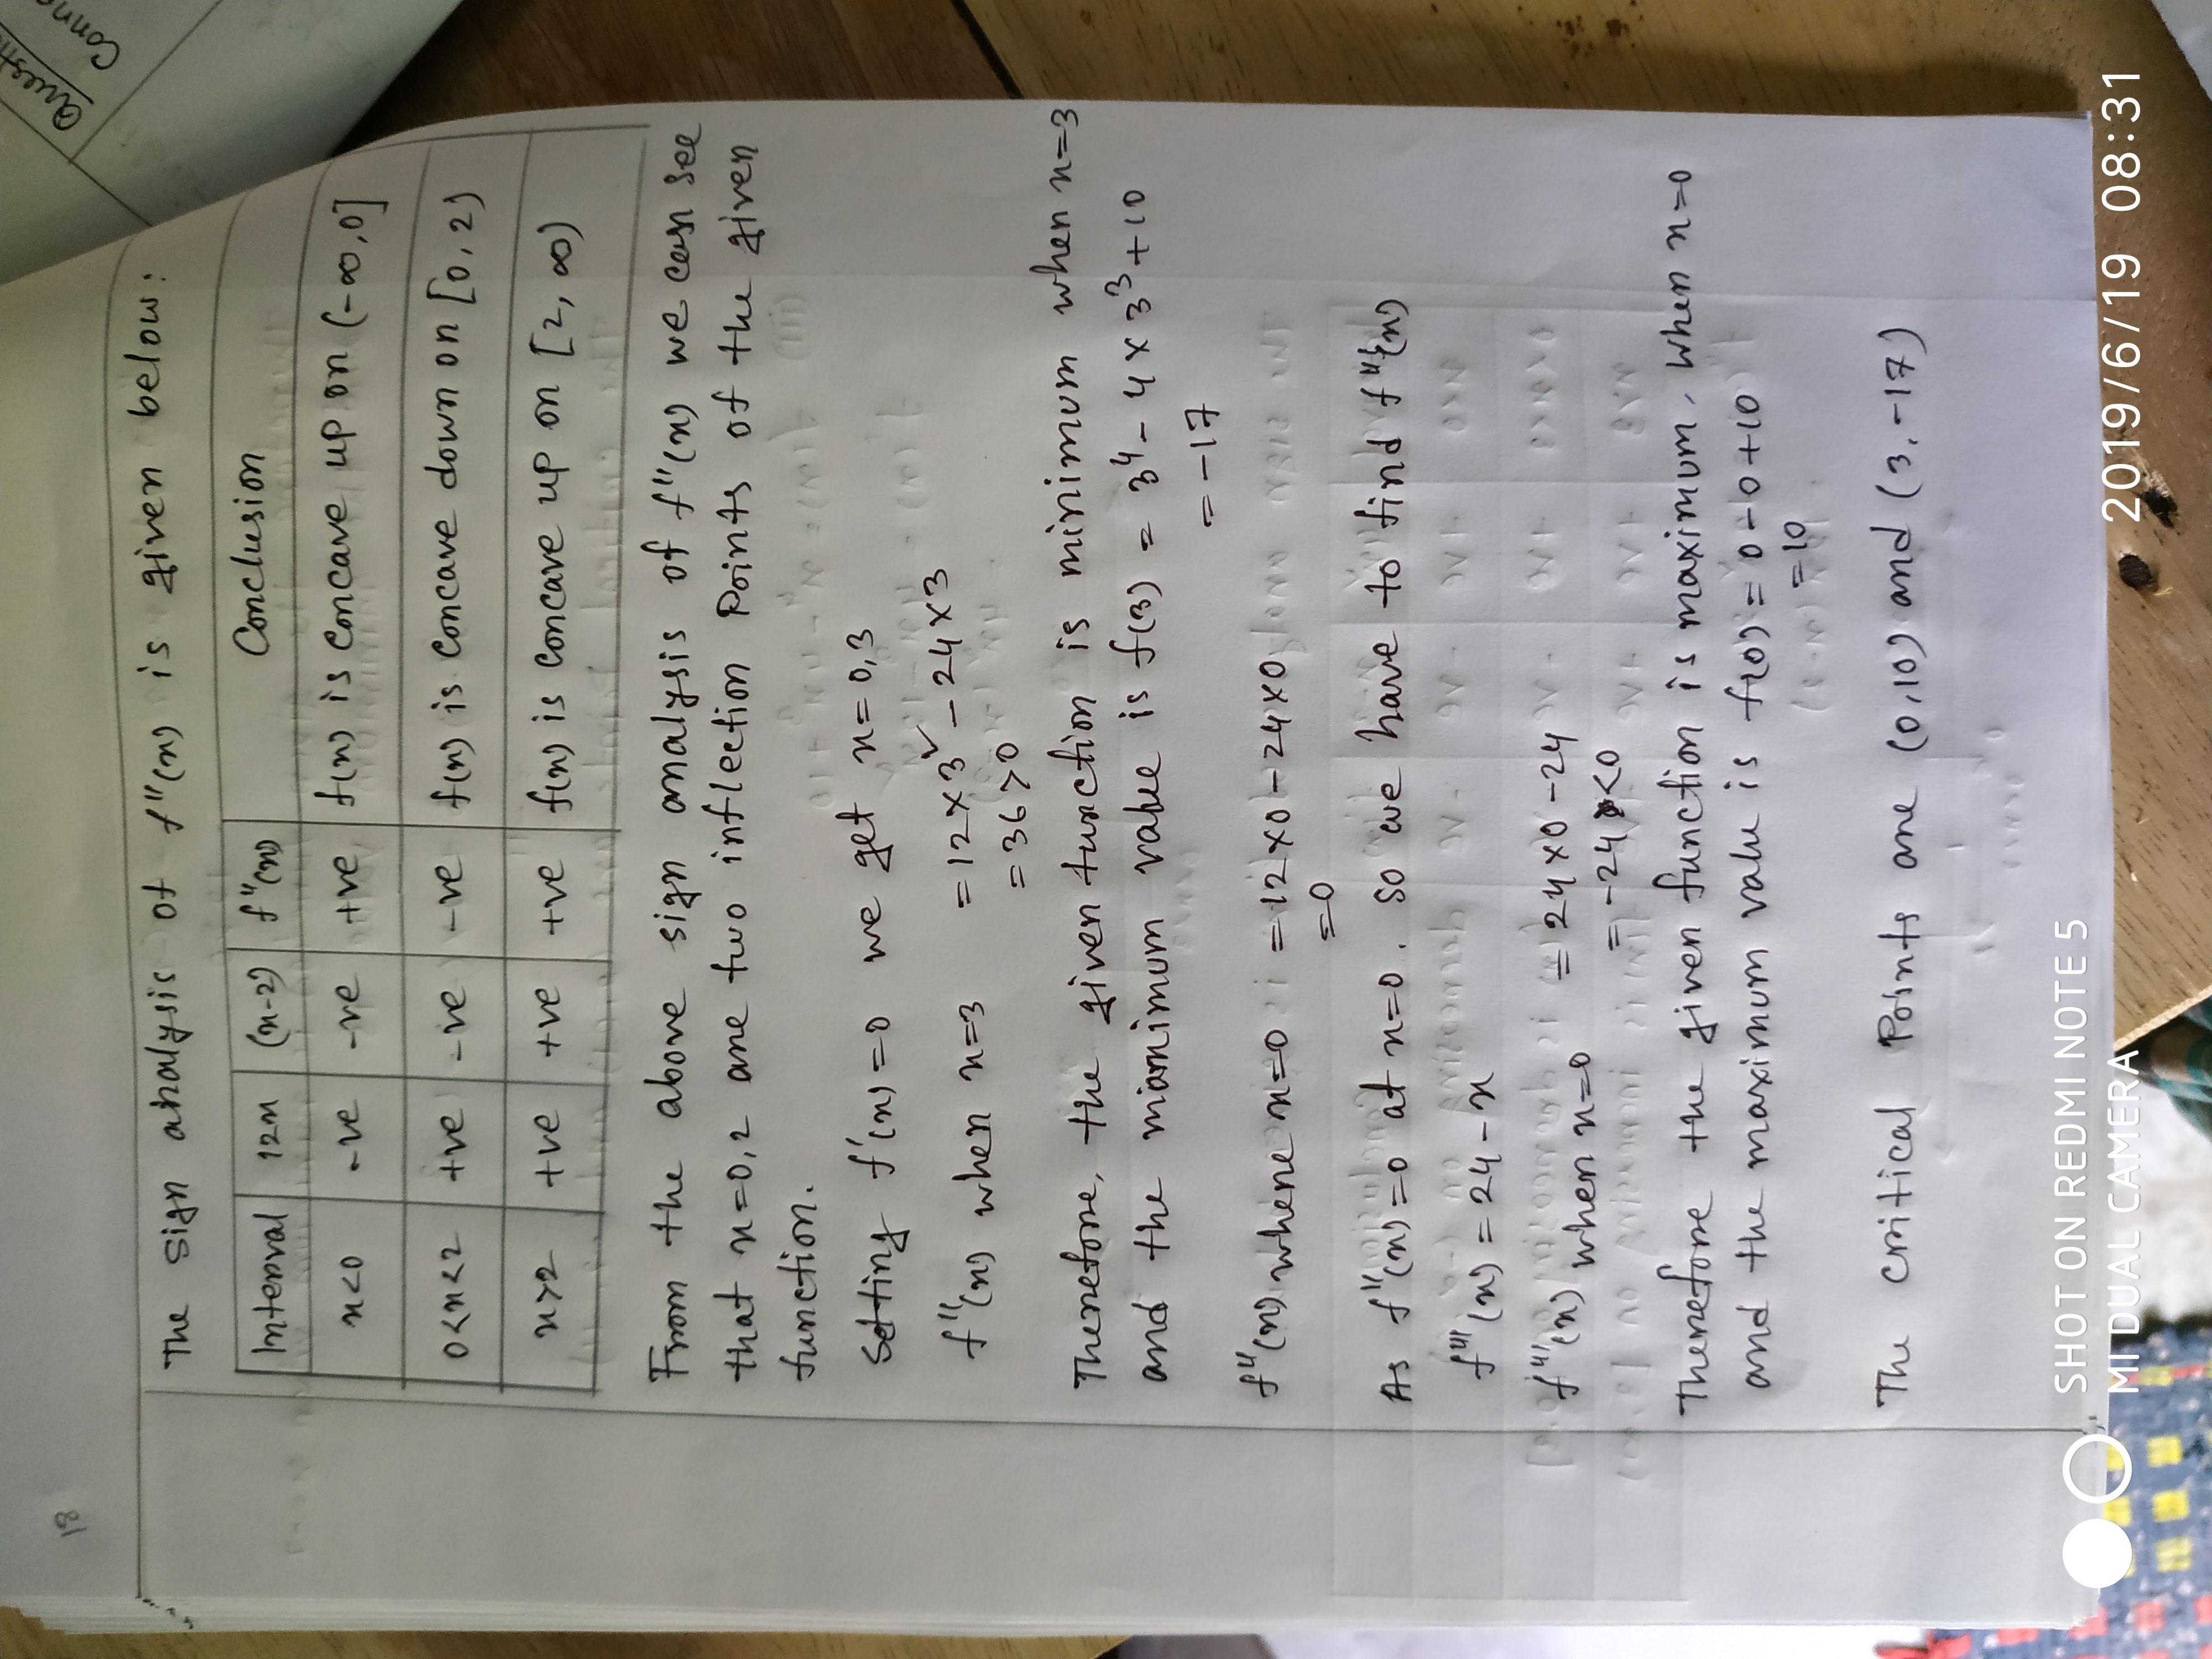 18
Questi
Conn
The sign analysis of f''(x) is given below:
Interval 12x (x-2) f''(x) Conclusion
x<0 -ve -ve +ve f(x) is concave up on (-∞,0]
0<x<2 +ve -ve -ve f(x) is concave down on [0,2)
x>2 +ve +ve +ve f(x) is concave up on [2,∞)
From the above sign analysis of f''(x) we can see
that x=0,2 are two inflection Points of the given
function.
Setting f'(x)=0 we get x=0,3
f''(x) when x=3 =12×3² -24×3
=36>0
Therefore, the given function is minimum when x=3
and the minimum value is f(3) = 3⁴- 4×3³+10
=-17
f''(x) where x=0 =12×0-24×0
=0
As f''(x)=0 at x=0. so we have to find f'''(x)
f'''(x)=24-x
f'''(x) when x=0 = 24×0-24
= -24 <0
Therefore the given function is maximum, when x=0
and the maximum value is f(0)= 0-0+10
=10
The critical Points are (0,10) and (3,-17)
SHOT ON REDMI NOTE 5
MI DUAL CAMERA
2019/6/19 08:31